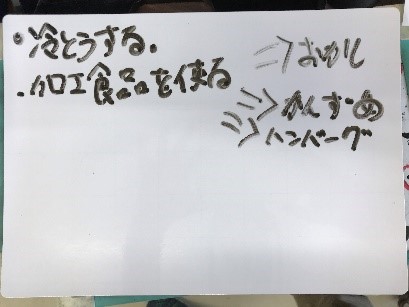 ・冷とうする。
⇒おかし
・加工食品を使る
⇒かんずめ
⇒ハンバーグ